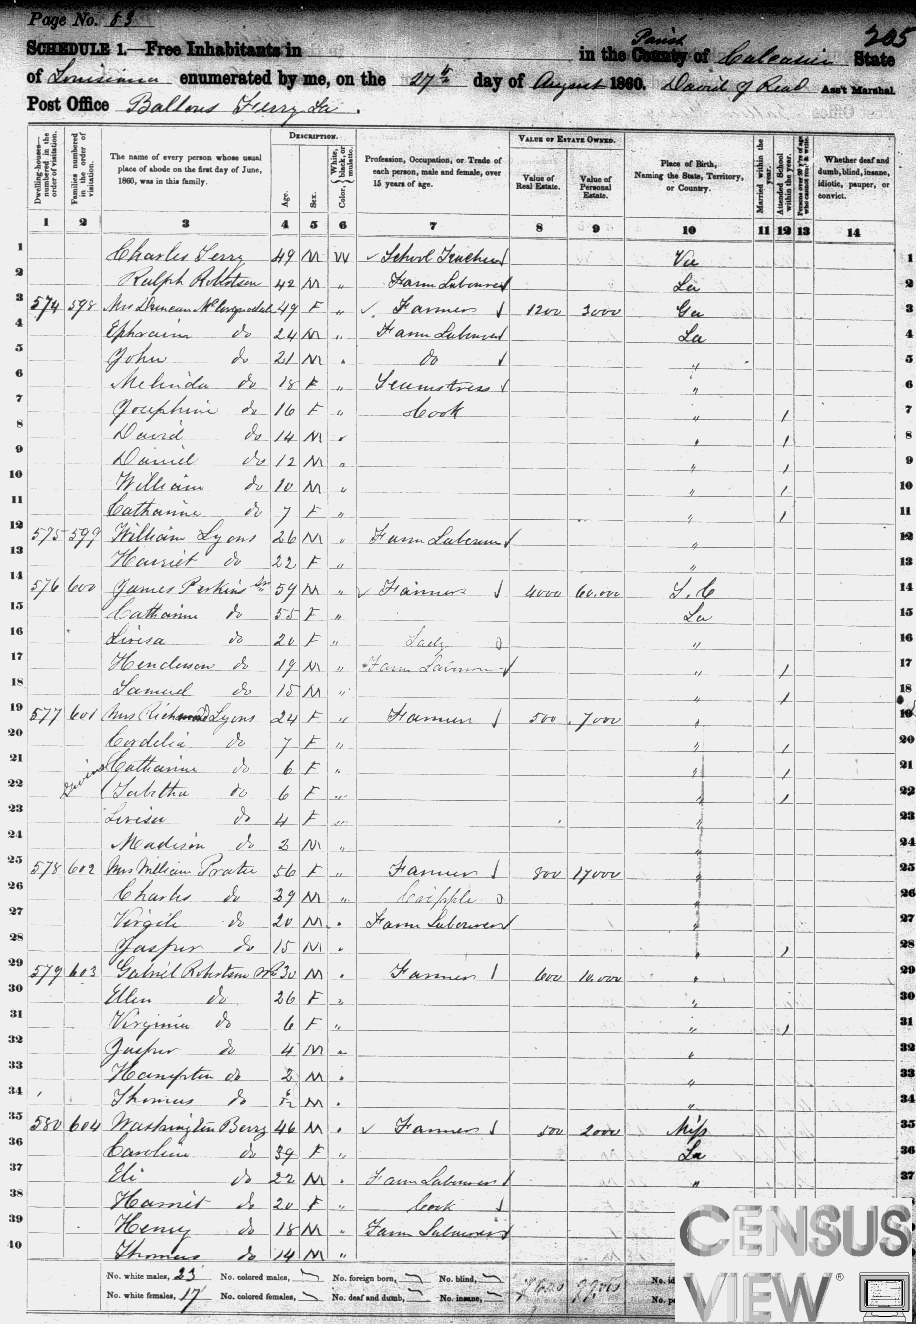 Page No. 63
205
SCHEDULE 1.—Free Inhabitants in in the County Parish of Calcasieu State
of Louisiana enumerated by me, on the 27th day of August 1860. David J Read Ass't Marshal.
Post Office Ballous Ferry La.
Dwelling-houses—numbered in the order of visitation.
Families numbered in the order of visitation.
The name of every person whose usual place of abode on the first day of June, 1860, was in this family.
DESCRIPTION.
Age.
Sex.
Color, White, black, or mulatto.
Profession, Occupation, or Trade of each person, male and female, over 15 years of age.
VALUE OF ESTATE OWNED.
Value of Real Estate.
Value of Personal Estate.
Place of Birth, Naming the State, Territory, or Country.
Married within the year.
Attended School within the year.
Persons over 20 y'rs of age who cannot read & write.
Whether deaf and dumb, blind, insane, idiotic, pauper, or convict.
1 2 3 4 5 6 7 8 9 10 11 12 13 14
1 Charles Terry 49 M W School Teacher Va 1
2 Ralph Robertson 42 M " Farm Labourer La 2
3 574 598 Mrs Duncan 49 F " Farmer 1200 3000 Ga 3
4 Ephraim do 24 M " Farm Labourer La 4
5 John do 21 M " do " 5
6 Melinda do 18 F " Seamstress " 6
7 Josephine do 16 F " Cook " 1 7
8 David do 14 M " " 1 8
9 Daniel do 12 M " " 1 9
10 William do 10 M " " 1 10
11 Catharine do 7 F " " 1 11
12 575 599 William Lyons 26 M " Farm Labourer " 12
13 Harriet do 22 F " " 13
14 576 600 James Perkins Sr 59 M " Farmer 4000 60.000 S. C 14
15 Catharine do 55 F " La 15
16 Livisa do 20 F " Lady " 16
17 Henderson do 19 M " Farm Labourer " 1 17
18 Samuel do 15 M " " 1 18
19 577 601 Mrs Richmond Lyons 24 F " Farmer 500 7000 " 19
20 Cordelia do 7 F " " 1 20
21 Catharine do 6 F " " 1 21
22 Tabitha do 6 F " " 1 22
23 Livisa do 4 F " " 23
24 Madison do 2 M " " 24
25 578 602 Mrs William Prater 56 F " Farmer 800 17000 " 25
26 Charles do 29 M " Cripple " 26
27 Virgile do 20 M " Farm Labourer " 27
28 Jasper do 15 M " " 1 28
29 579 603 Gabriel Robertson 30 M " Farmer 600 10.000 " 29
30 Ellen do 26 F " " 30
31 Virginia do 6 F " " 1 31
32 Jasper do 4 M " " 32
33 Hampton do 2 M " " 33
34 Thomas do M " " 34
35 580 604 Washington Berry 46 M " Farmer 500 2000 Miss 35
36 Caroline do 39 F " La 36
37 Eli do 22 M " Farm Labourer " 37
38 Harriet do 20 F " Cook
39 Henry do 18 M " Farm Labourer
40 Thomas do 14 M "
No. white males, 23 No. colored males, No. foreign born, No. blind,
No. white females, 17 No. colored females, No. deaf and dumb, No. insane,
CENSUS
VIEW®